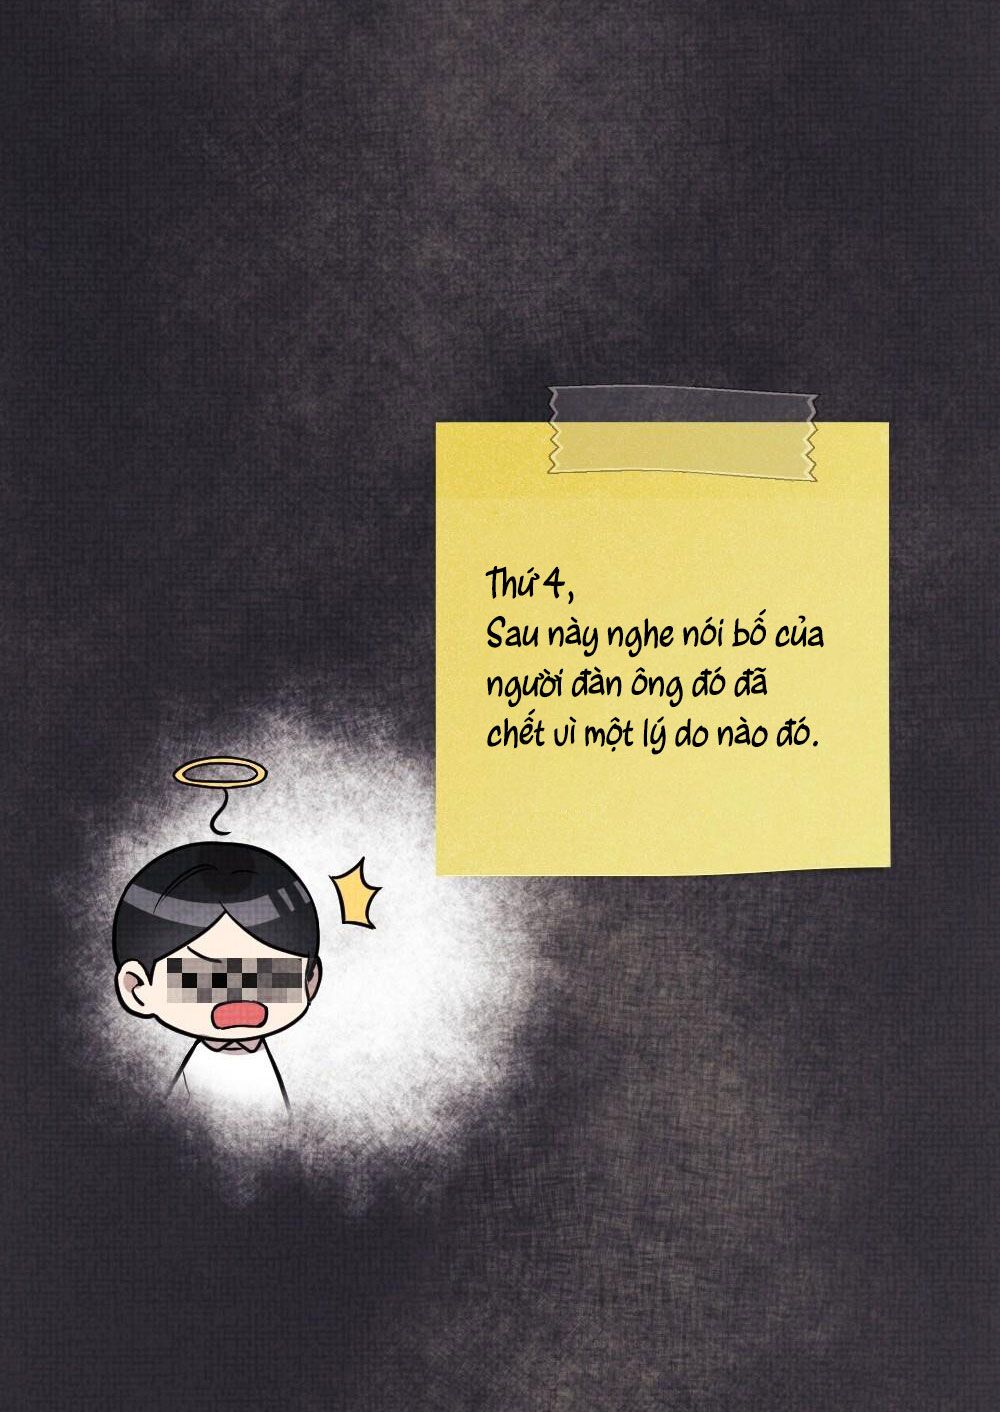 Thứ 4,
Sau này nghe nói bố của
người đàn ông đó đã
chết vì một lý do nào đó.